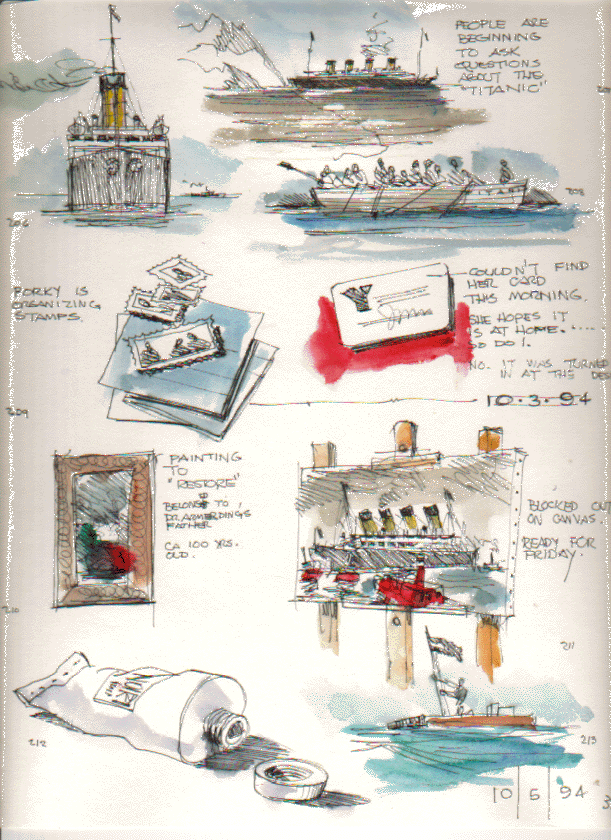 PEOPLE ARE
BEGINNING
TO ASK
QUESTIONS
ABOUT THE
"TITANIC"
206
208
PORKY IS
ORGANIZING
STAMPS.
COULDN'T FIND
HER CARD
THIS MORNING.
SHE HOPES IT
IS AT HOME.....
SO DO I.
NO. IT WAS TURNED
IN AT THIS
209
10.3.94
PAINTING
TO
"RESTORE"
BELONGS TO
DR. ARMERDINGS
FATHER
CA 100 YRS.
OLD.
BLOCKED OUT
ON CANVAS.
READY FOR
FRIDAY.
211
212
213
10 5 94